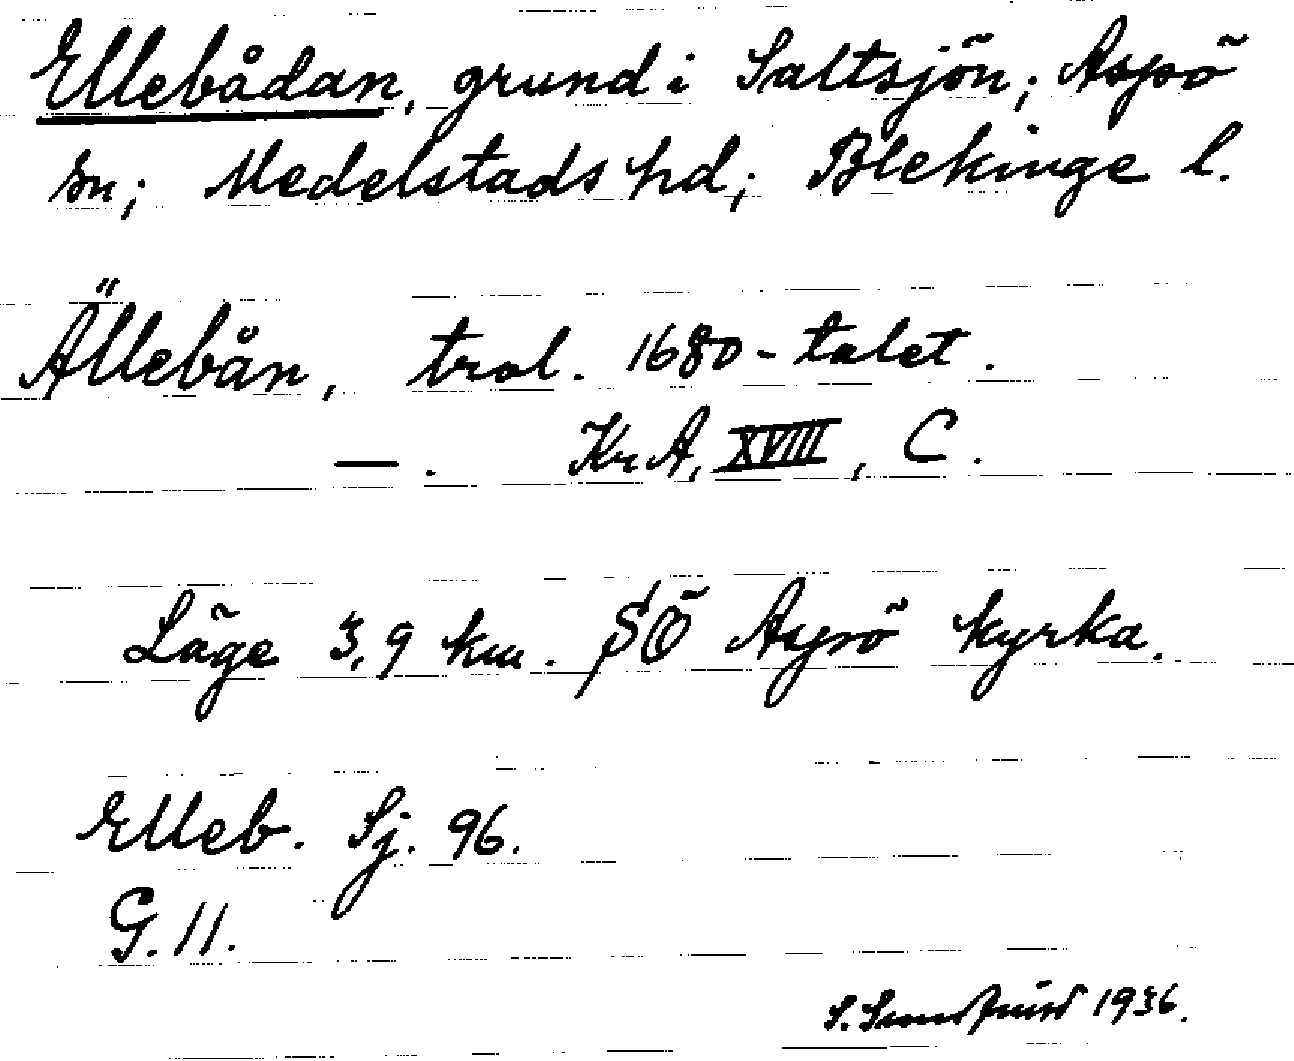 Ellebådan, grund i Saltsjön; Aspö
sn; Medelstads hd; Blekinge l.
Ällebån, trol. 1680-talet.
—. KrA, XVIII, C.
Läge 3,9 km. SÖ Aspö kyrka.
Elleb. Sj. 96.
G. 11.
S. 1936.